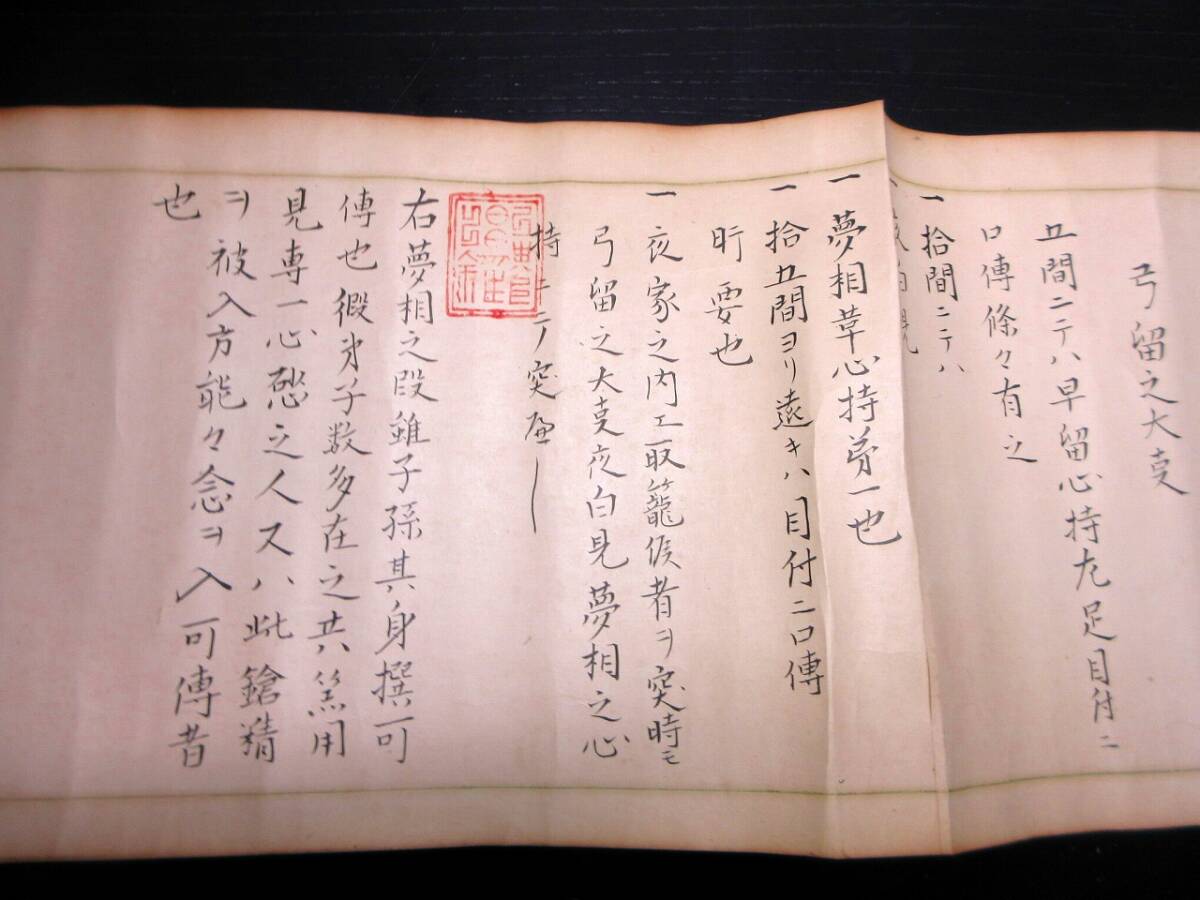 弓留之大支
五間ニテハ早留心持尤足目付ニ
口傳條々有之
一 拾間ニテハ
一 夢相草心持第一也
一 拾五間ヨリ遠キハ目付ニ口傳
肝要也
一 夜家之内エ取籠候者ヲ突時モ
弓留之大支夜白見夢相之心
持ニテ突
右夢相之段雖子孫其身撰可
傳也縦弟子数多在之共ハ篤用
見専一心懇之人又ハ此鎗精
ヲ被入方能々念ヲ入可傳者
也